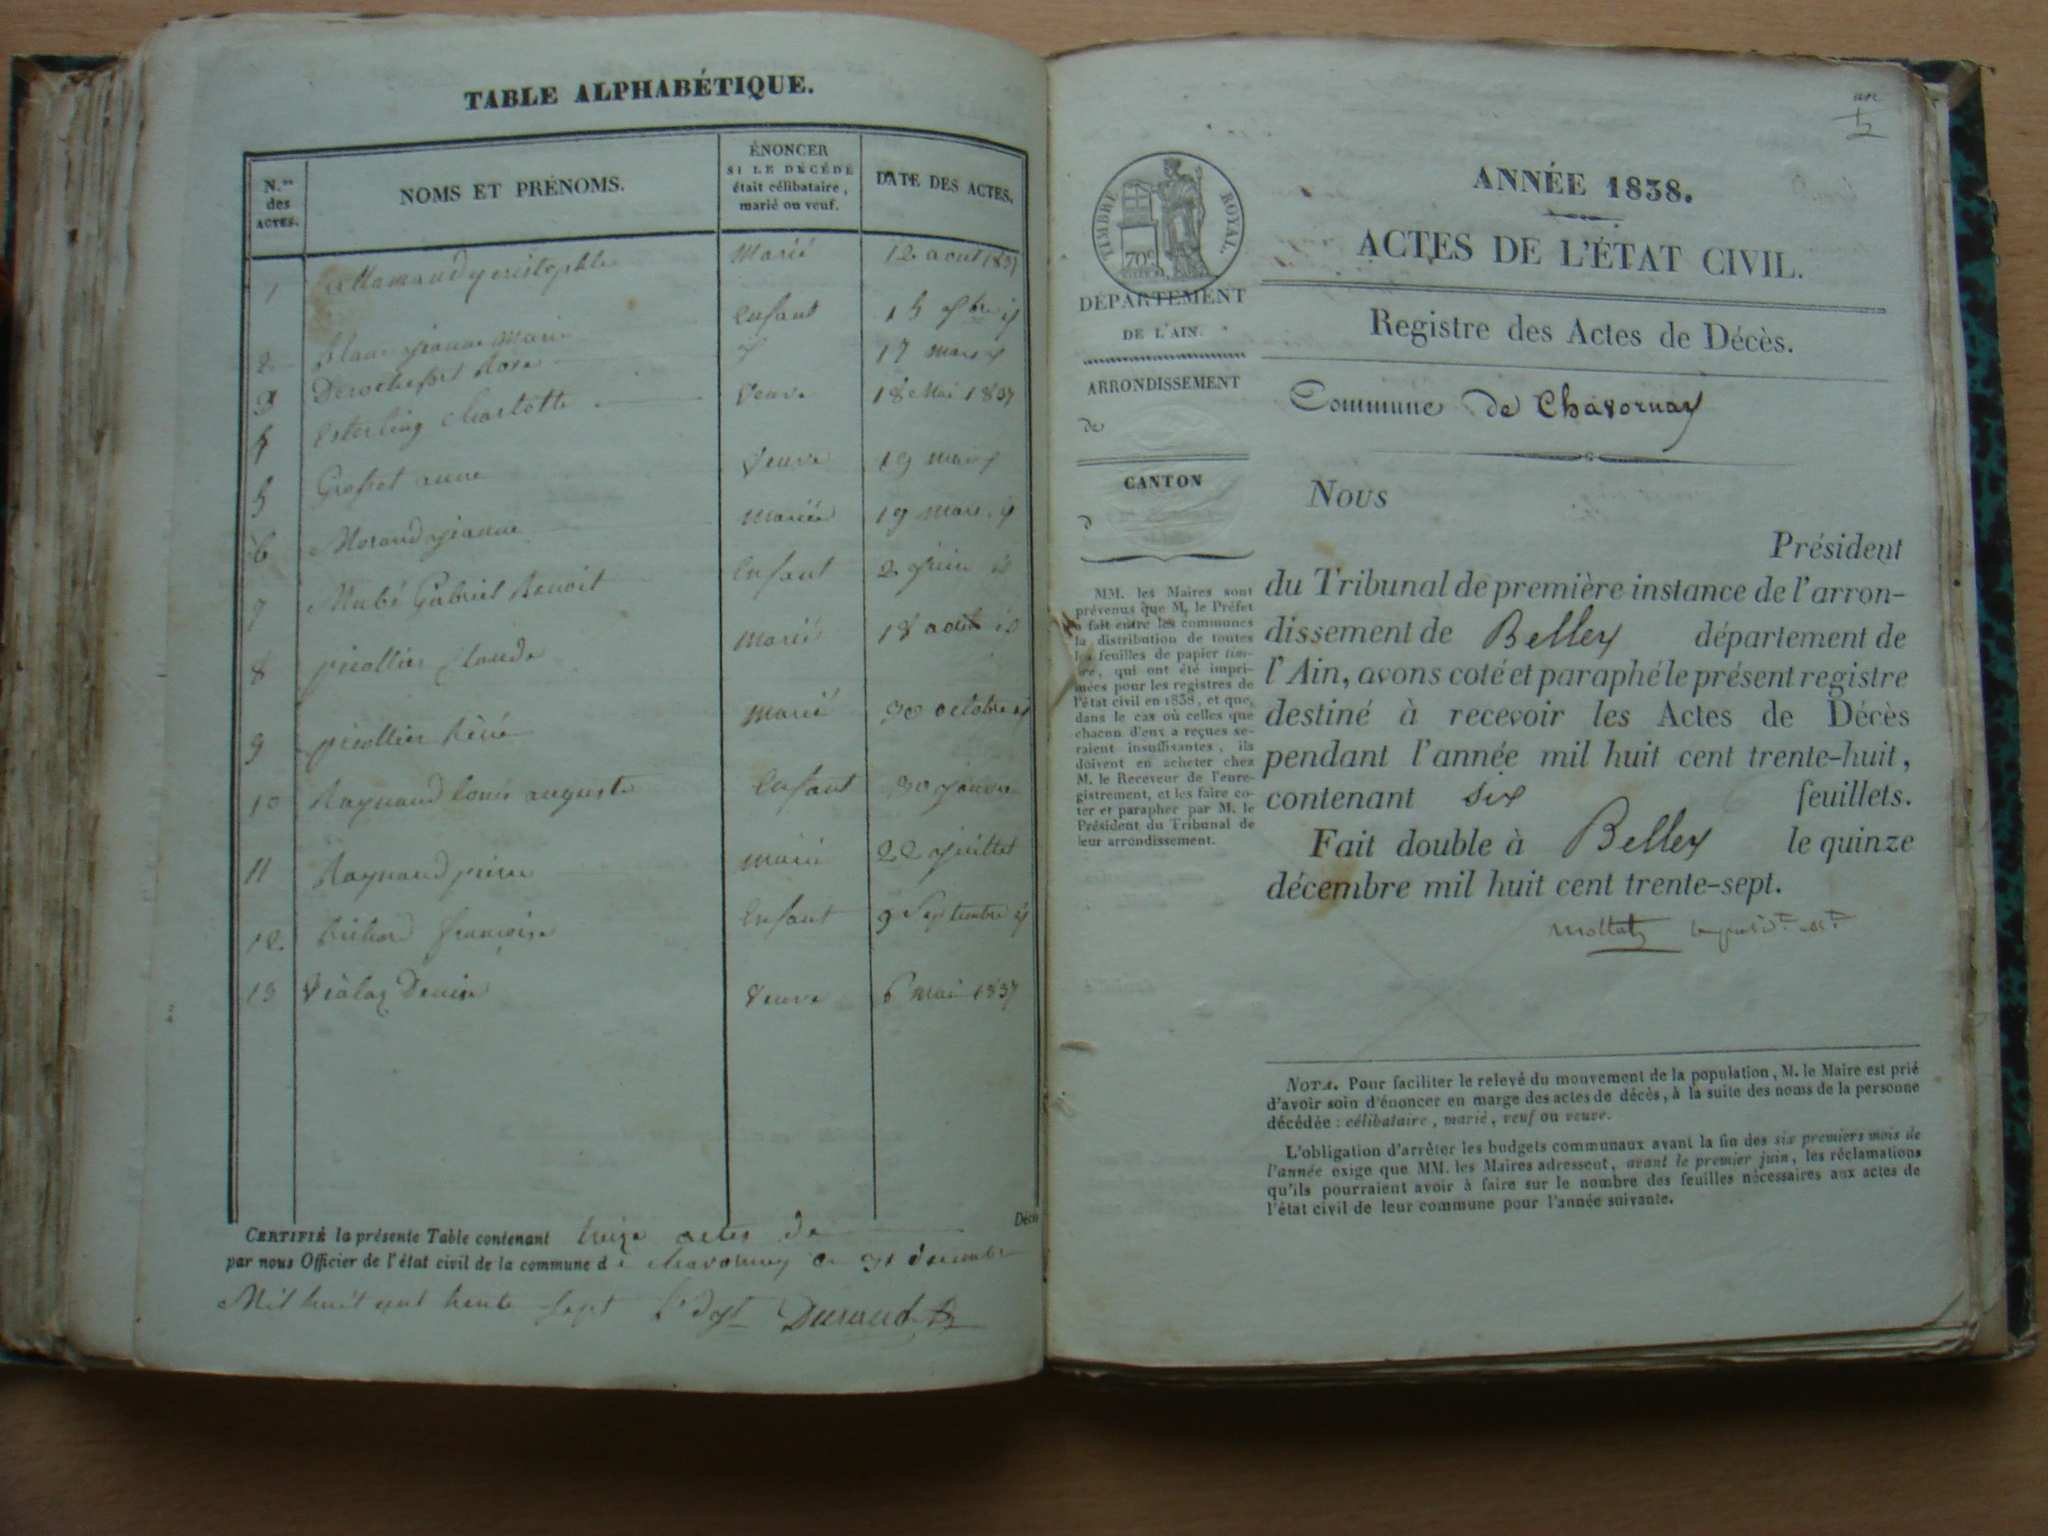 TABLE ALPHABÉTIQUE.
N.os des ACTES.
NOMS ET PRÉNOMS.
ÉNONCER
SI LE DÉCÉDÉ
était célibataire,
marié ou veuf.
DATE DES ACTES.
1 Marié 12 aout 1837
2 jeanne Marie Enfant 15
3 Derochefort Rose 17 mars
4 Esterling Charlotte Veuve 18 Mai 1837
5 Grosset anne Veuve 19 mars
6 Morand jeanne mariée 19 mars
7 Mubé Gabriel Benoit Enfant 2 juin
8 picollier Claude marié 18
9 picollier Réné marié 30 octobre
10 Raynaud louis auguste Enfant 30
11 Raynaud pierre marié 22 juillet
12 françoise Enfant 9 Septembre
13 Denise Veuve 6 mai 1837
CERTIFIÉ la présente Table contenant treize actes de
par nous Officier de l'état civil de la commune de chavornay ce 31 décembre
Mil huit cent trente sept Durand
un
TIMBRE ROYAL.
70c
DÉPARTEMENT
DE L'AIN.
ARRONDISSEMENT
de
CANTON
d
MM. les Maires sont
prévenus que M. le Préfet
a fait entre les communes
la distribution de toutes
les feuilles de papier tim-
bré, qui ont été impri-
mées pour les registres de
l'état civil en 1838, et que,
dans le cas où celles que
chacun d'eux a reçues se-
raient insuffisantes, ils
doivent en acheter chez
M. le Receveur de l'enre-
gistrement, et les faire co-
ter et parapher par M. le
Président du Tribunal de
leur arrondissement.
ANNÉE 1838.
ACTES DE L'ÉTAT CIVIL.
Registre des Actes de Décès.
Commune de Chavornay
Nous
Président
du Tribunal de première instance de l'arron-
dissement de Belley département de
l'Ain, avons coté et paraphé le présent registre
destiné à recevoir les Actes de Décès
pendant l'année mil huit cent trente-huit,
contenant six feuillets.
Fait double à Belley le quinze
décembre mil huit cent trente-sept.
NOTA. Pour faciliter le relevé du mouvement de la population, M. le Maire est prié
d'avoir soin d'énoncer en marge des actes de décès, à la suite des noms de la personne
décédée : célibataire, marié, veuf ou veuve.
L'obligation d'arrêter les budgets communaux avant la fin des six premiers mois de
l'année exige que MM. les Maires adressent, avant le premier juin, les réclamations
qu'ils pourraient avoir à faire sur le nombre des feuilles nécessaires aux actes de
l'état civil de leur commune pour l'année suivante.